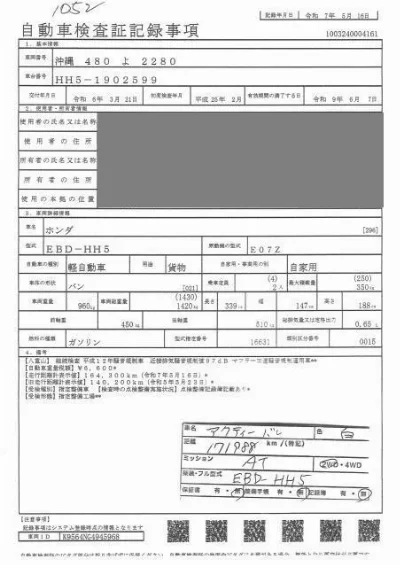 1052
記録年月日 令和 7年 5月16日
自動車検査証記録事項
1003240004161
1. 基本情報
車両番号 沖縄 480 よ 2280
車台番号 HH5-1902599
交付年月日 初度検査年月 平成25年 2月 有効期間の満了する日 令和 9年 6月 7日
2. 使用者・所有者情報
使用者の氏名又は名称
使用者の住所
所有者の氏名又は名称
所有者の住所
使用の本拠の位置
3. 車両詳細情報
車名 ホンダ [296]
型式 EBD-HH5 原動機の型式 E07Z
自動車の種別 軽自動車 用途 貨物 自家用・事業用の別 自家用
車体の形状 バン [021] 乗車定員 (4) 2人 最大積載量 (250) 350kg
車両重量 960kg 車両総重量 (1430) 1420kg 長さ 339cm 幅 147cm 高さ 188cm
前軸重 450kg 後軸重 510kg 総排気量又は定格出力 0.65
燃料の種類 ガソリン 型式指定番号 16631 類別区分番号 0015
4. 備考
【自動車重量税額】¥6,600*
【走行距離計表示値】164,300km(令和7年5月16日)*
【旧走行距離計表示値】140,200km(令和5年5月23日)*
【受検種別】指定整備車 【検査時の点検整備実施状況】点検整備記録簿記載あり*
【受検形態】指定整備工場**
車名 アクティーバン 色 白
記録 171988 km/(時記)
ミッション AT 2WD・4WD
類別・フル型式 EBD-HH5
保証書 有・無 取扱手帳 有・無 記録簿 有・無
【注意事項】
記録事項はシステム登録時点の情報となります
車両ID K9564NG4945968